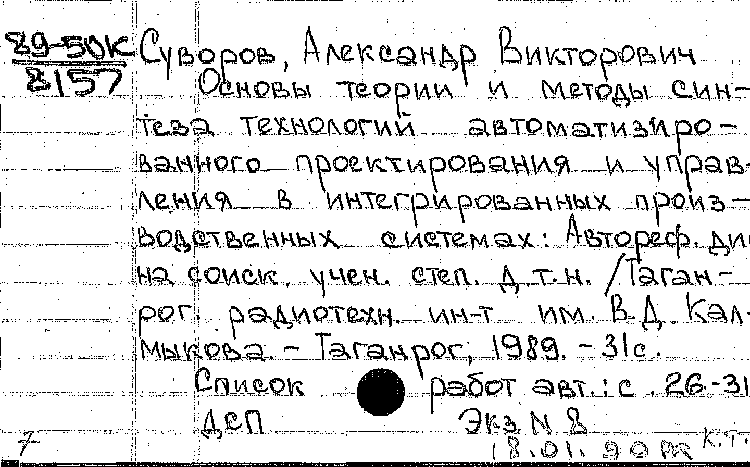 89-50К Суворов, Александр Викторович
8157 Основы теории и методы син-
теза технологий автоматизиро-
ванного проектирования и управ-
ления в интегрированных произ-
водственных системах: Автореф. ди
на соиск. учен. степ. д.т.н. /Таган-
рог. радиотехн. ин-т им. В.Д. Кал-
мыкова. - Таганрог, 1989. - 31с.
Список работ авт.: с. 26-31
ДСП Экз N 8
7 18.01.90 К.Т.